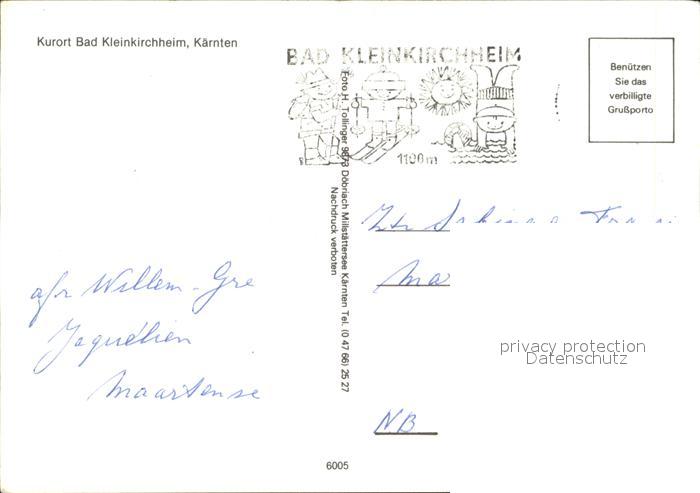 Kurort Bad Kleinkirchheim, Kärnten
BAD KLEINKIRCHHEIM
1100 m
Benützen
Sie das
verbilligte
Grußporto
Foto H. Tollinger 9873 Döbriach Millstättersee Kärnten Tel. (0 47 66) 25 27
Nachdruck verboten
afz Willem - Gre
Jaquelien
Maartense
Ma
NB
privacy protection
Datenschutz
6005